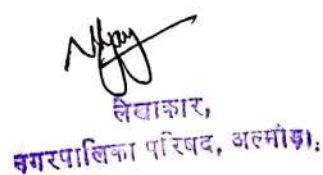 लेखाकार,
नगरपालिका परिषद, अल्मोड़ा।